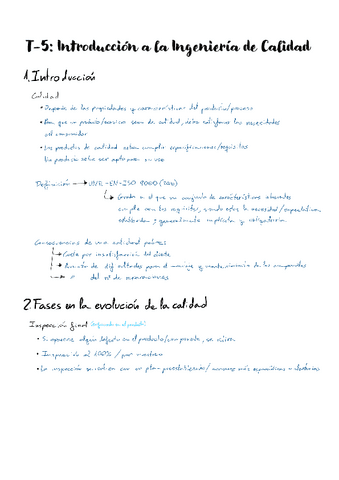 T-5: Introducción a la Ingeniería de Calidad
1. Introducción
Calidad
• Depende de las propiedades y características del producto/proceso
• Para que un producto/servicio sea de calidad, debe satisfacer las necesidades
del consumidor
• Los productos de calidad deben cumplir especificaciones/reglas
Un producto debe ser apto para su uso
Definición → UNE-EN-ISO 9000
↳ Grado en el que un conjunto de características
cumple con los requisitos, siendo estos la necesidad/expectativa
establecida, generalmente implícita y obligatoria
Consecuencias de una calidad pobre
→ Coste por insatisfacción del cliente
→ Aumento de dificultades para el montaje y mantenimiento de los componentes
→ " del nº de
2. Fases en la evolución de la calidad
Inspección final
• Si aparece algún defecto en el producto/componente, se
• Inspección al 100% / por muestreo
• La inspección se realiza con un plan preestablecido/